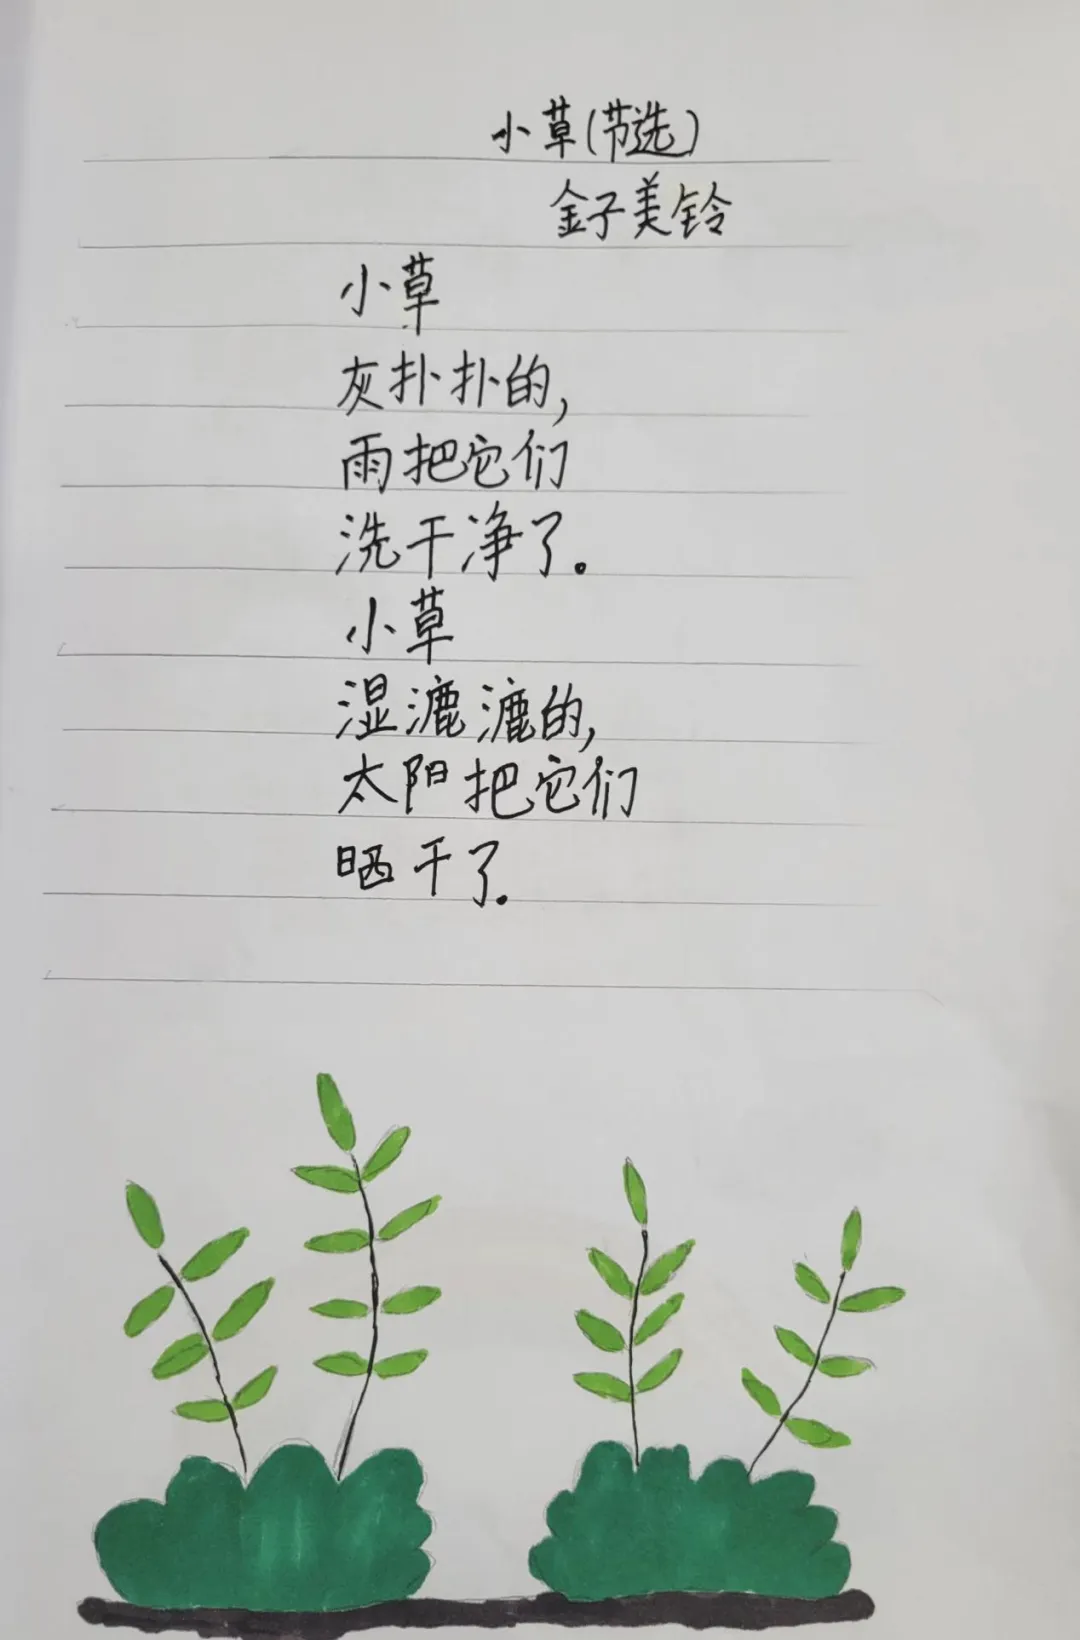 小草(节选)
金子美铃
小草
灰扑扑的,
雨把它们
洗干净了。
小草
湿漉漉的,
太阳把它们
晒干了.